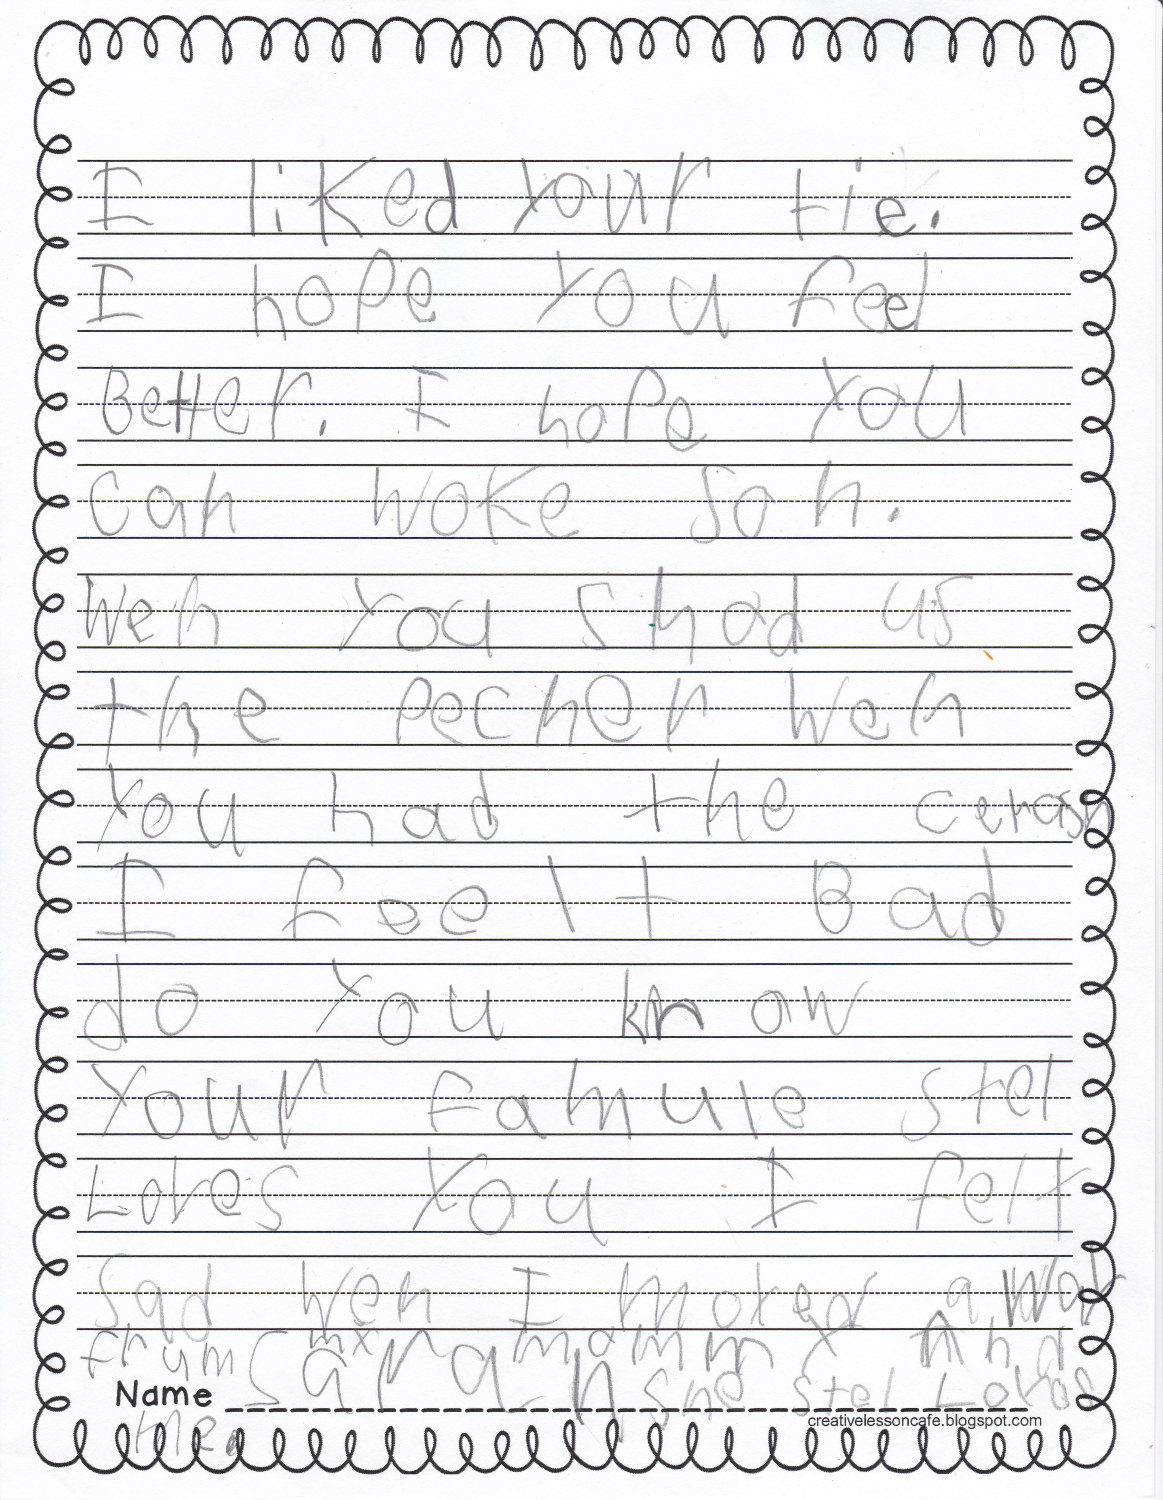 I liked your tie.
I hope you feel
Better. I hope you
can woke son.
Wen you shad us
the pecher wen
you had the cerash
I foelt Bad
do you know
your famule stel
Loves you I felt
Sad wen I moved away
frum my mommy And
Name Sarah she stel Loves
creativelessoncafe.blogspot.com
me.